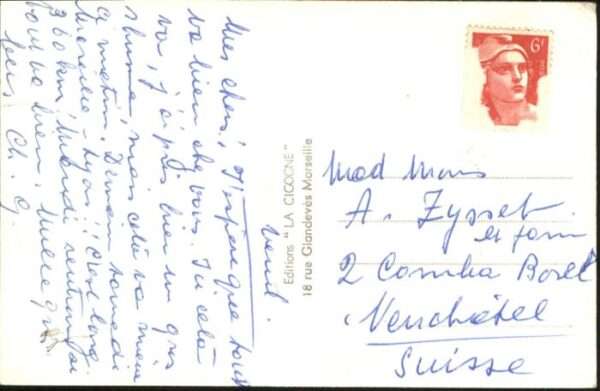 Vend.
Mes chers, J'espère que tout
va bien chez vous. Ici cela
va, j'ai pris bien un gros
rhume, mais cela va mieux
ce matin. Demain samedi
Marseille - Lyon!! C'est long
360 km, Mardi
tout va bien.
Ch. G.
Editions "LA CIGOGNE"
18 rue Glandevès Marseille
6f
Mad Mons
A. Zysset
et fam
2 Comba Borel
Neuchâtel
Suisse